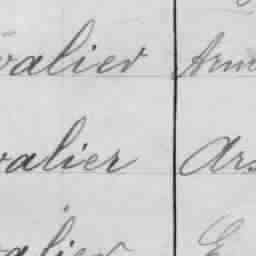 valier Arm
valier Ars
alier E